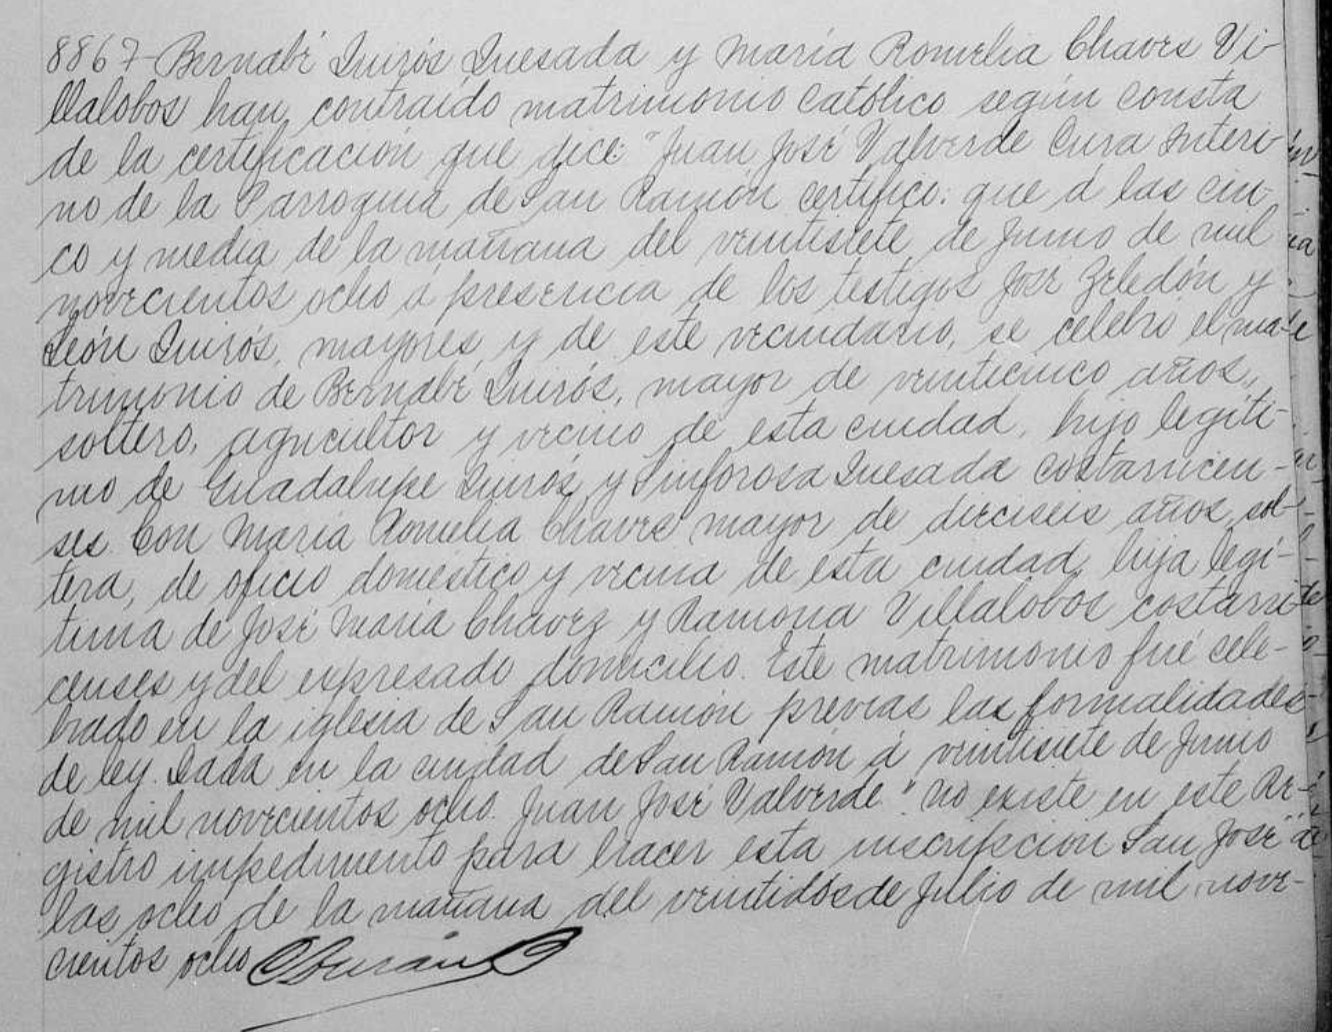 8867-Bernabé Quirós Quesada y María Romelia Chaves Vi-
llalobos han contraído matrimonio católico según consta
de la certificación que dice: "Juan José Valverde Cura Interi-
no de la Parroquia de San Ramón certifico: que á las cin-
co y media de la mañana del veintisiete de Junio de mil
novecientos ocho á presencia de los testigos José Zeledón y
León Quirós, mayores y de este vecindario, se celebró el ma-
trimonio de Bernabé Quirós, mayor de veinticinco años,
soltero, agricultor y vecino de esta ciudad, hijo legíti-
mo de Guadalupe Quirós y Sinforosa Quesada costarricen-
ses. Con María Romelia Chaves mayor de dieciseis años, sol-
tera, de oficio doméstico y vecina de esta ciudad, hija legí-
tima de José María Chavez y Ramona Villalobos costarri-
censes y del expresado domicilio. Este matrimonio fué cele-
brado en la iglesia de San Ramón previas las formalidades
de ley. Dada en la ciudad de San Ramón á veintisiete de Junio
de mil novecientos ocho. Juan José Valverde." No existe en este Re-
gistro impedimento para hacer esta inscripción San José á
las ocho de la mañana del veintidós de Julio de mil nove-
cientos ocho